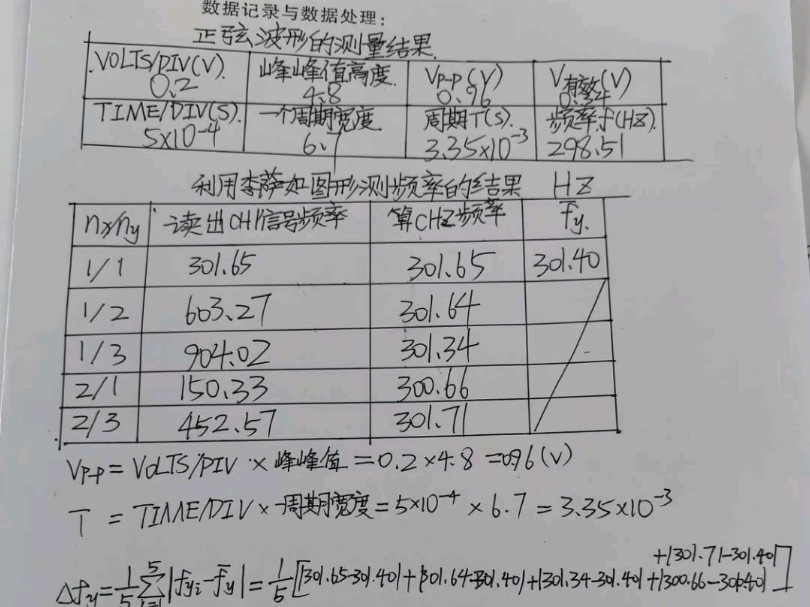 数据记录与数据处理:
正弦波形的测量结果.
VOLTS/DIV(V). 峰峰值高度. Vp-p(V) V有效(V)
0.2 4.8 0.96
TIME/DIV(S). 一个周期宽度. 周期T(S). 频率f(HZ).
5×10-4 6.7 3.35×10-3 298.51
利用李萨如图形测频率的结果 HZ
nx/ny 读出CH1信号频率 算CHZ频率 f̄y.
1/1 301.65 301.65 301.40
1/2 603.27 301.64
1/3 904.02 301.34
2/1 150.33 300.66
2/3 452.57 301.71
Vp-p = VOLTS/DIV × 峰峰值 = 0.2×4.8 = 0.96(V)
T = TIME/DIV × 一周期宽度 = 5×10-4 × 6.7 = 3.35×10-3
+|301.71-301.40|]
Δfy = 1/5 5∑i=1 |fyi - f̄y| = 1/5 [|301.65-301.40|+|301.64-301.40|+|301.34-301.40|+|300.66-301.40|